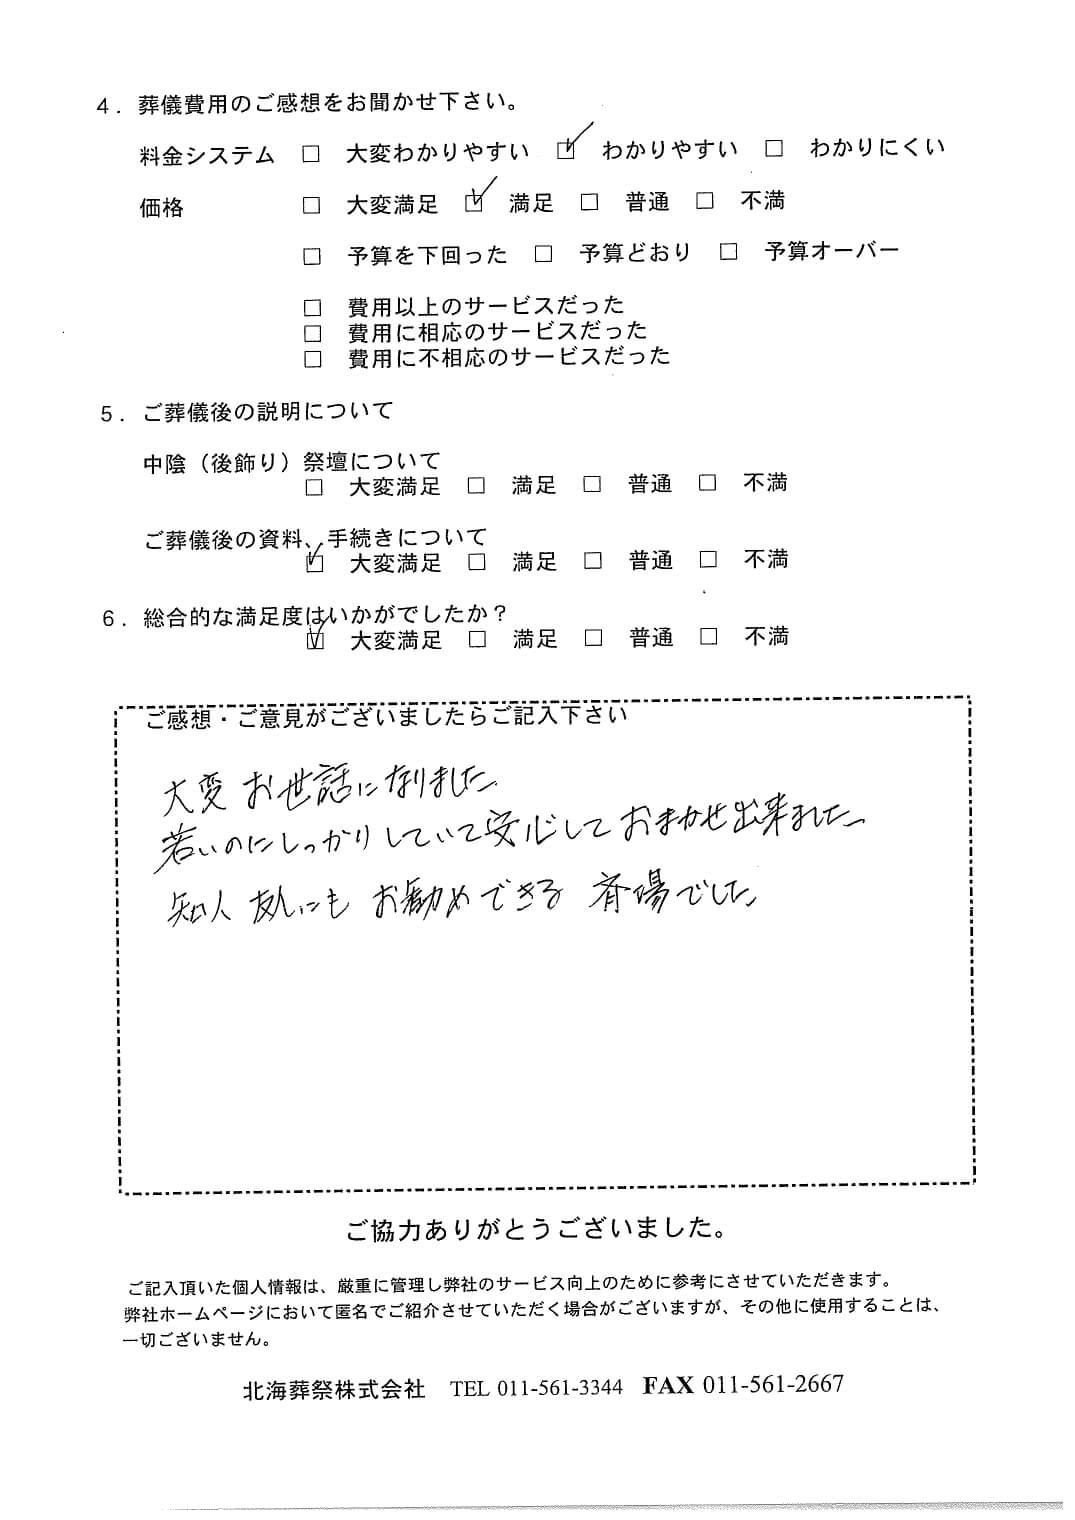 4．葬儀費用のご感想をお聞かせ下さい。
料金システム □ 大変わかりやすい ☑ わかりやすい □ わかりにくい
価格 □ 大変満足 ☑ 満足 □ 普通 □ 不満
□ 予算を下回った □ 予算どおり □ 予算オーバー
□ 費用以上のサービスだった
□ 費用に相応のサービスだった
□ 費用に不相応のサービスだった
5．ご葬儀後の説明について
中陰（後飾り）祭壇について
□ 大変満足 □ 満足 □ 普通 □ 不満
ご葬儀後の資料、手続きについて
☑ 大変満足 □ 満足 □ 普通 □ 不満
6．総合的な満足度はいかがでしたか？
☑ 大変満足 □ 満足 □ 普通 □ 不満
ご感想・ご意見がございましたらご記入下さい
大変お世話になりました。
若いのにしっかりしていて安心しておまかせ出来ました。
知人 友人にも お勧めできる 斉場でした。
ご協力ありがとうございました。
ご記入頂いた個人情報は、厳重に管理し弊社のサービス向上のために参考にさせていただきます。
弊社ホームページにおいて匿名でご紹介させていただく場合がございますが、その他に使用することは、
一切ございません。
北海葬祭株式会社 TEL 011-561-3344 FAX 011-561-2667